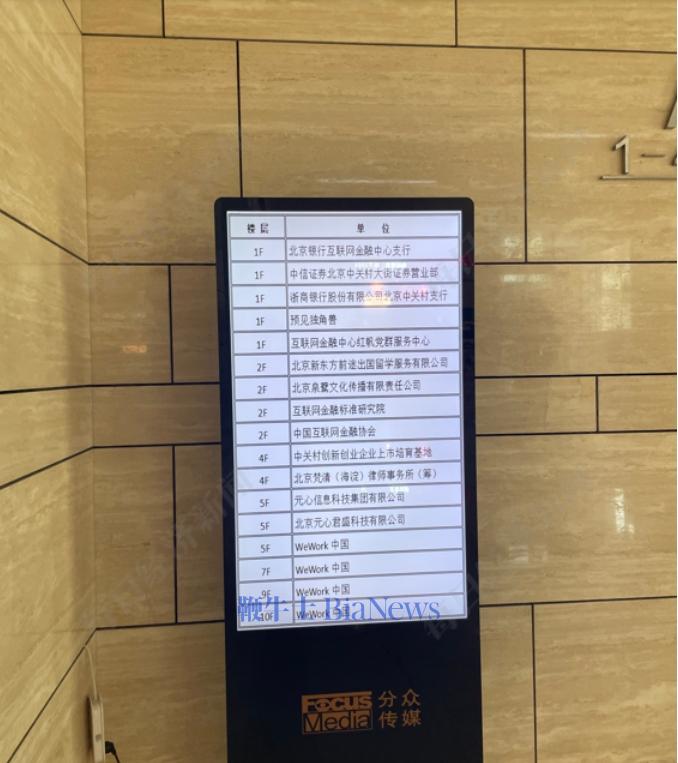 1-
楼层 单位
1F 北京银行互联网金融中心支行
1F 中信证券北京中关村大街证券营业部
1F 浙商银行股份有限公司北京中关村支行
1F 预见独角兽
1F 互联网金融中心红帆党群服务中心
2F 北京新东方前途出国留学服务有限公司
2F 北京泉鹭文化传播有限责任公司
2F 互联网金融标准研究院
2F 中国互联网金融协会
4F 中关村创新创业企业上市培育基地
4F 北京梵清（海淀）律师事务所（筹）
5F 元心信息科技集团有限公司
5F 北京元心君盛科技有限公司
5F WeWork 中国
7F WeWork 中国
9F WeWork 中国
10F WeWork 中国
鞭牛士 BiaNews
FOCUS Media 分众传媒